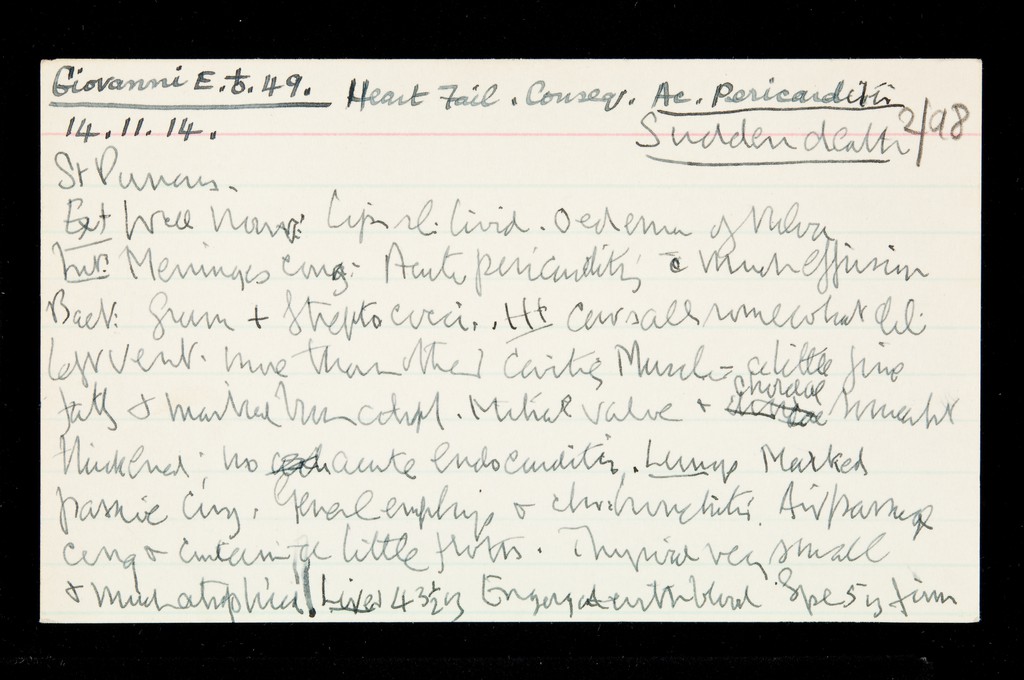 Giovanni E. 49. Heart Fail. Conseq. Ac. Pericarditis
14.11.14. Sudden death 2/98
St
Ext Well Lips sl. livid. Oedema of Vulva
Int: Meninges cong. Acute pericarditis c much effusion
Bact: Gram + Streptococci. Ht cavs all somewhat dil:
left vent. more than other cavities Muscle - a little
fatty & marked brown atroph. Mitral valve & chordae somewhat
thickened; no acute endocarditis. Lungs Marked
passive cong. General emphys & chr: bronchitis. Air passages
cong & contain a little froth. Thyroid very small
& much atrophied Liver 43½ oz Engorged with blood Spl 5 oz firm